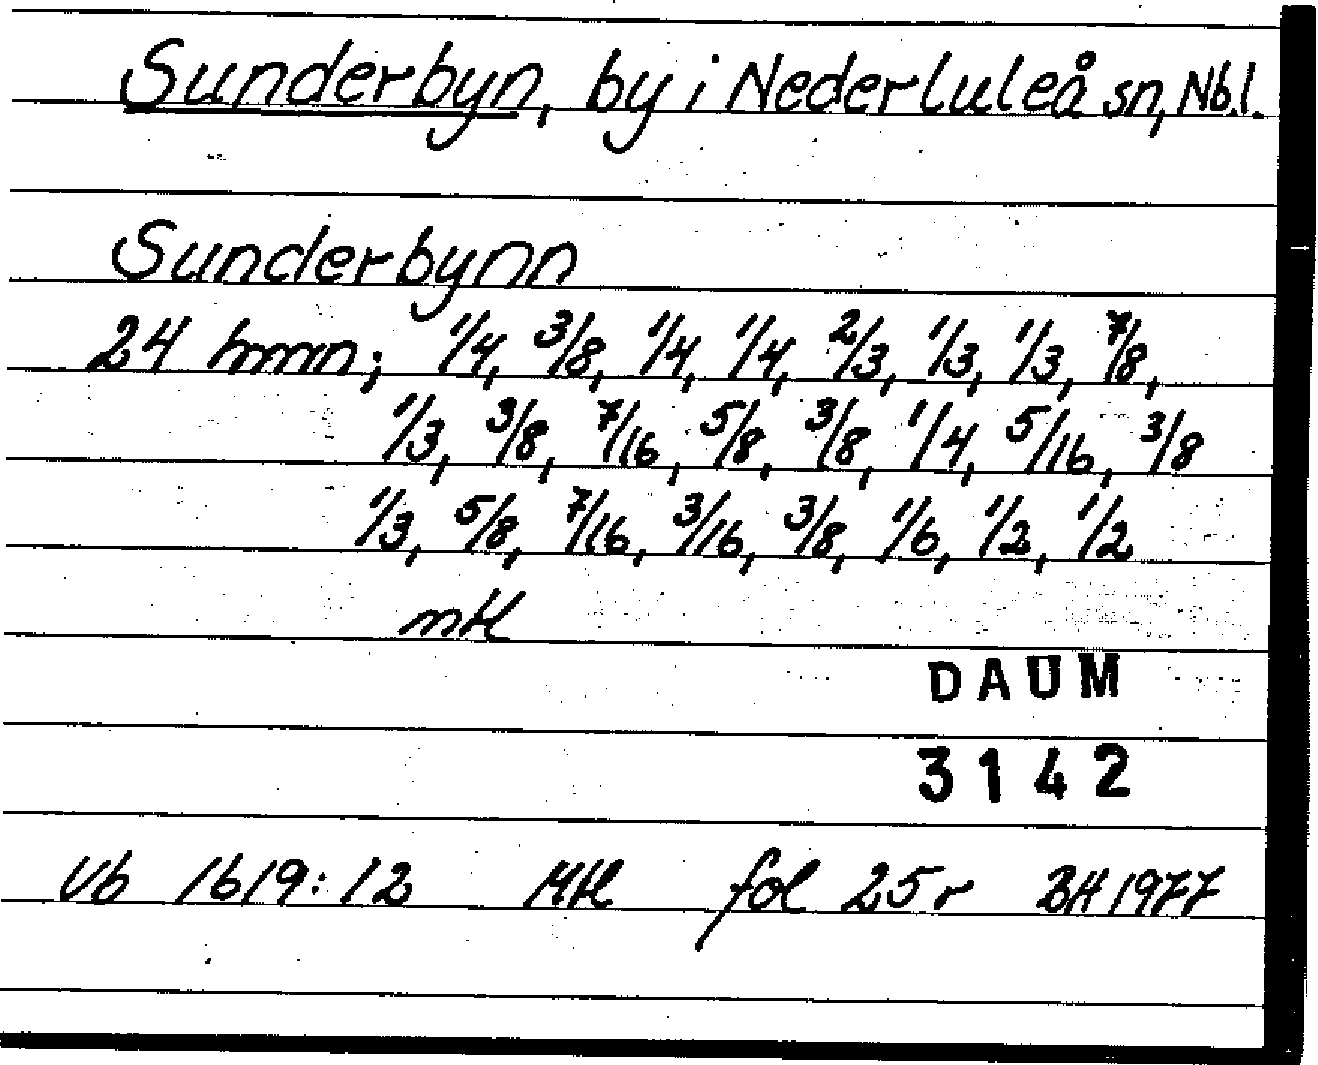 Sunderbyn, by i Nederluleå sn, Nb.l.
Sunderbynn
24 hmn; 1/4, 3/8, 1/4, 1/4, 2/3, 1/3, 1/3, 7/8,
1/3, 3/8, 7/16, 5/8, 3/8, 1/4, 5/16, 3/8
1/3, 5/8, 7/16, 3/16, 3/8, 1/6, 1/2, 1/2
mtl
DAUM
3142
Vb 1619:12 Mtl fol 25r BH 1977